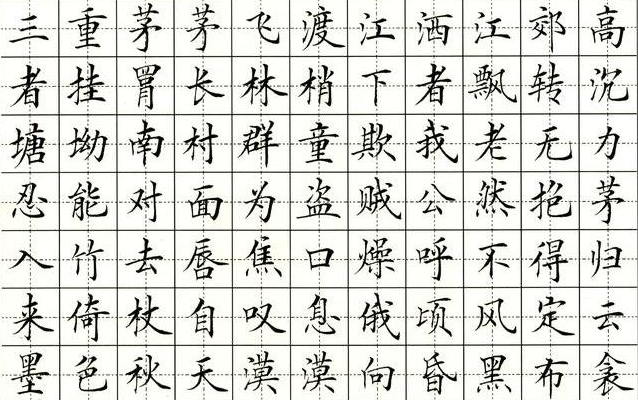 三重茅茅飞渡江洒江郊高
者挂罥长林梢下者飘转沉
塘坳南村群童欺我老无力
忍能对面为盗贼公然抱茅
入竹去唇焦口燥呼不得归
来倚杖自叹息俄顷风定云
墨色秋天漠漠向昏黑布衾